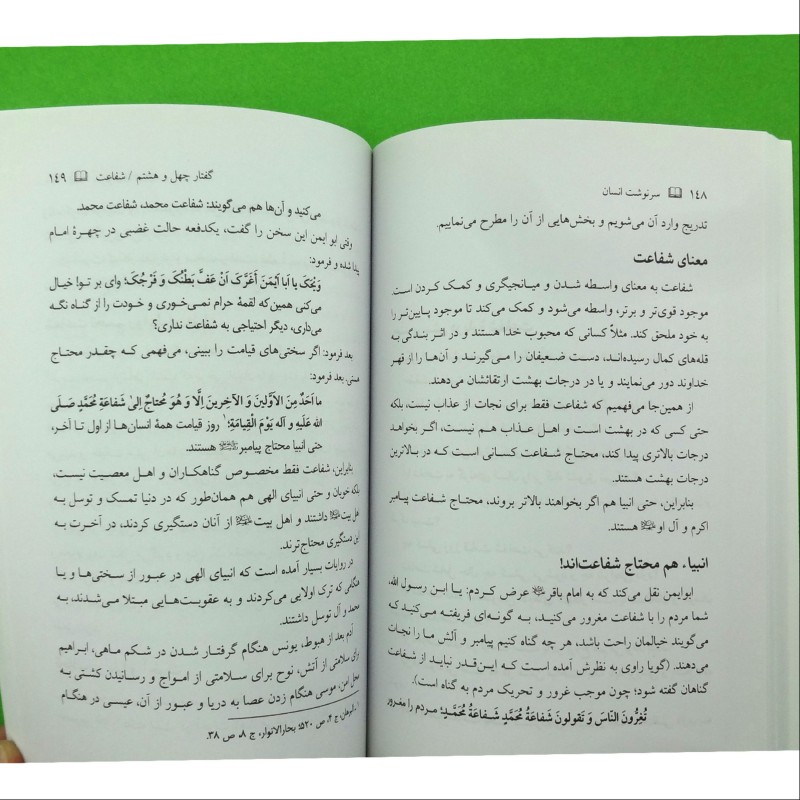 ۱۴۸ سرنوشت انسان
تدریج وارد آن می‌شویم و بخش‌هایی از آن را مطرح می‌نماییم.
معنای شفاعت
شفاعت به معنای واسطه شدن و میانجیگری و کمک کردن است.
موجود قوی‌تر و برتر، واسطه می‌شود و کمک می‌کند تا موجود پایین‌تر را
به خود ملحق کند. مثلاً کسانی که محبوب خدا هستند و در اثر بندگی به
قله‌های کمال رسیده‌اند، دست ضعیفان را می‌گیرند و آن‌ها را از قهر
خداوند دور می‌نمایند و یا در درجات بهشت ارتقائشان می‌دهند.
از همین‌جا می‌فهمیم که شفاعت فقط برای نجات از عذاب نیست، بلکه
حتی کسی که در بهشت است و اهل عذاب هم نیست، اگر بخواهد
درجات بالاتری پیدا کند، محتاج شفاعت کسانی است که در بالاترین
درجات بهشت هستند.
بنابراین، حتی انبیا هم اگر بخواهند بالاتر بروند، محتاج شفاعت پیامبر
اکرم و آل او هستند.
انبیاء هم محتاج شفاعت‌اند!
ابوایمن نقل می‌کند که به امام باقر عرض کردم: یا ابن رسول الله،
شما مردم را با شفاعت مغرور می‌کنید، به گونه‌ای فریفته می‌کنید که
می‌گویند خیالمان راحت باشد، هر چه گناه کنیم پیامبر و آلش ما را نجات
می‌دهند. (گویا راوی به نظرش آمده است که این‌قدر نباید از شفاعت
گناهان گفته شود؛ چون موجب غرور و تحریک مردم به گناه است).
تُغِرُّونَ النّاسَ وَ تَقولونَ شَفاعَةُ مُحَمَّدٍ شَفاعَةُ مُحَمَّدٍ؛ مردم را مغرور
گفتار چهل و هشتم / شفاعت ۱۴۹
می‌کنید و آن‌ها هم می‌گویند: شفاعت محمد، شفاعت محمد.
وقتی ابو ایمن این سخن را گفت، یکدفعه حالت غضبی در چهرهٔ امام
پیدا شده و فرمود:
وَیْحَکَ یا اَبا اَیْمَنَ أَغَرَّکَ اَنْ عَفَّ بَطْنُکَ وَ فَرْجُکَ؛ وای بر تو! خیال
می‌کنی همین‌که لقمهٔ حرام نمی‌خوری و خودت را از گناه نگه
می‌داری، دیگر احتیاجی به شفاعت نداری؟
بعد فرمود: اگر سختی‌های قیامت را ببینی، می‌فهمی که چقدر محتاج
هستی. بعد فرمود:
ما اَحَدٌ مِنَ الاَوَّلینَ وَ الآخِرینَ اِلّا وَ هُوَ مُحتاجٌ اِلیٰ شَفاعَةِ مُحَمَّدٍ صَلَّی
الله عَلَیْهِ وَ آلِه یَوْمَ الْقِیامَةِ؛۱ روز قیامت همهٔ انسان‌ها از اول تا آخر،
حتی انبیا محتاج پیامبر هستند.
بنابراین، شفاعت فقط مخصوص گناهکاران و اهل معصیت نیست،
بلکه خوبان و حتی انبیای الهی هم همان‌طور که در دنیا تمسک و توسل به
اهل بیت داشتند و اهل بیت از آنان دستگیری کردند، در آخرت به
این دستگیری محتاج‌ترند.
در روایات بسیار آمده است که انبیای الهی در عبور از سختی‌ها و یا
هنگامی که ترک اولایی می‌کردند و به عقوبت‌هایی مبتلا می‌شدند، به
محمد و آل او توسل داشتند.
آدم بعد از هبوط، یونس هنگام گرفتار شدن در شکم ماهی، ابراهیم
برای سلامتی از آتش، نوح برای سلامتی از امواج و رسانیدن کشتی به
محل امن، موسی هنگام زدن عصا به دریا و عبور از آن، عیسی در هنگام
۱. البرهان، ج ۴، ص ۵۲۰؛ بحارالانوار، ج ۸، ص ۳۸.